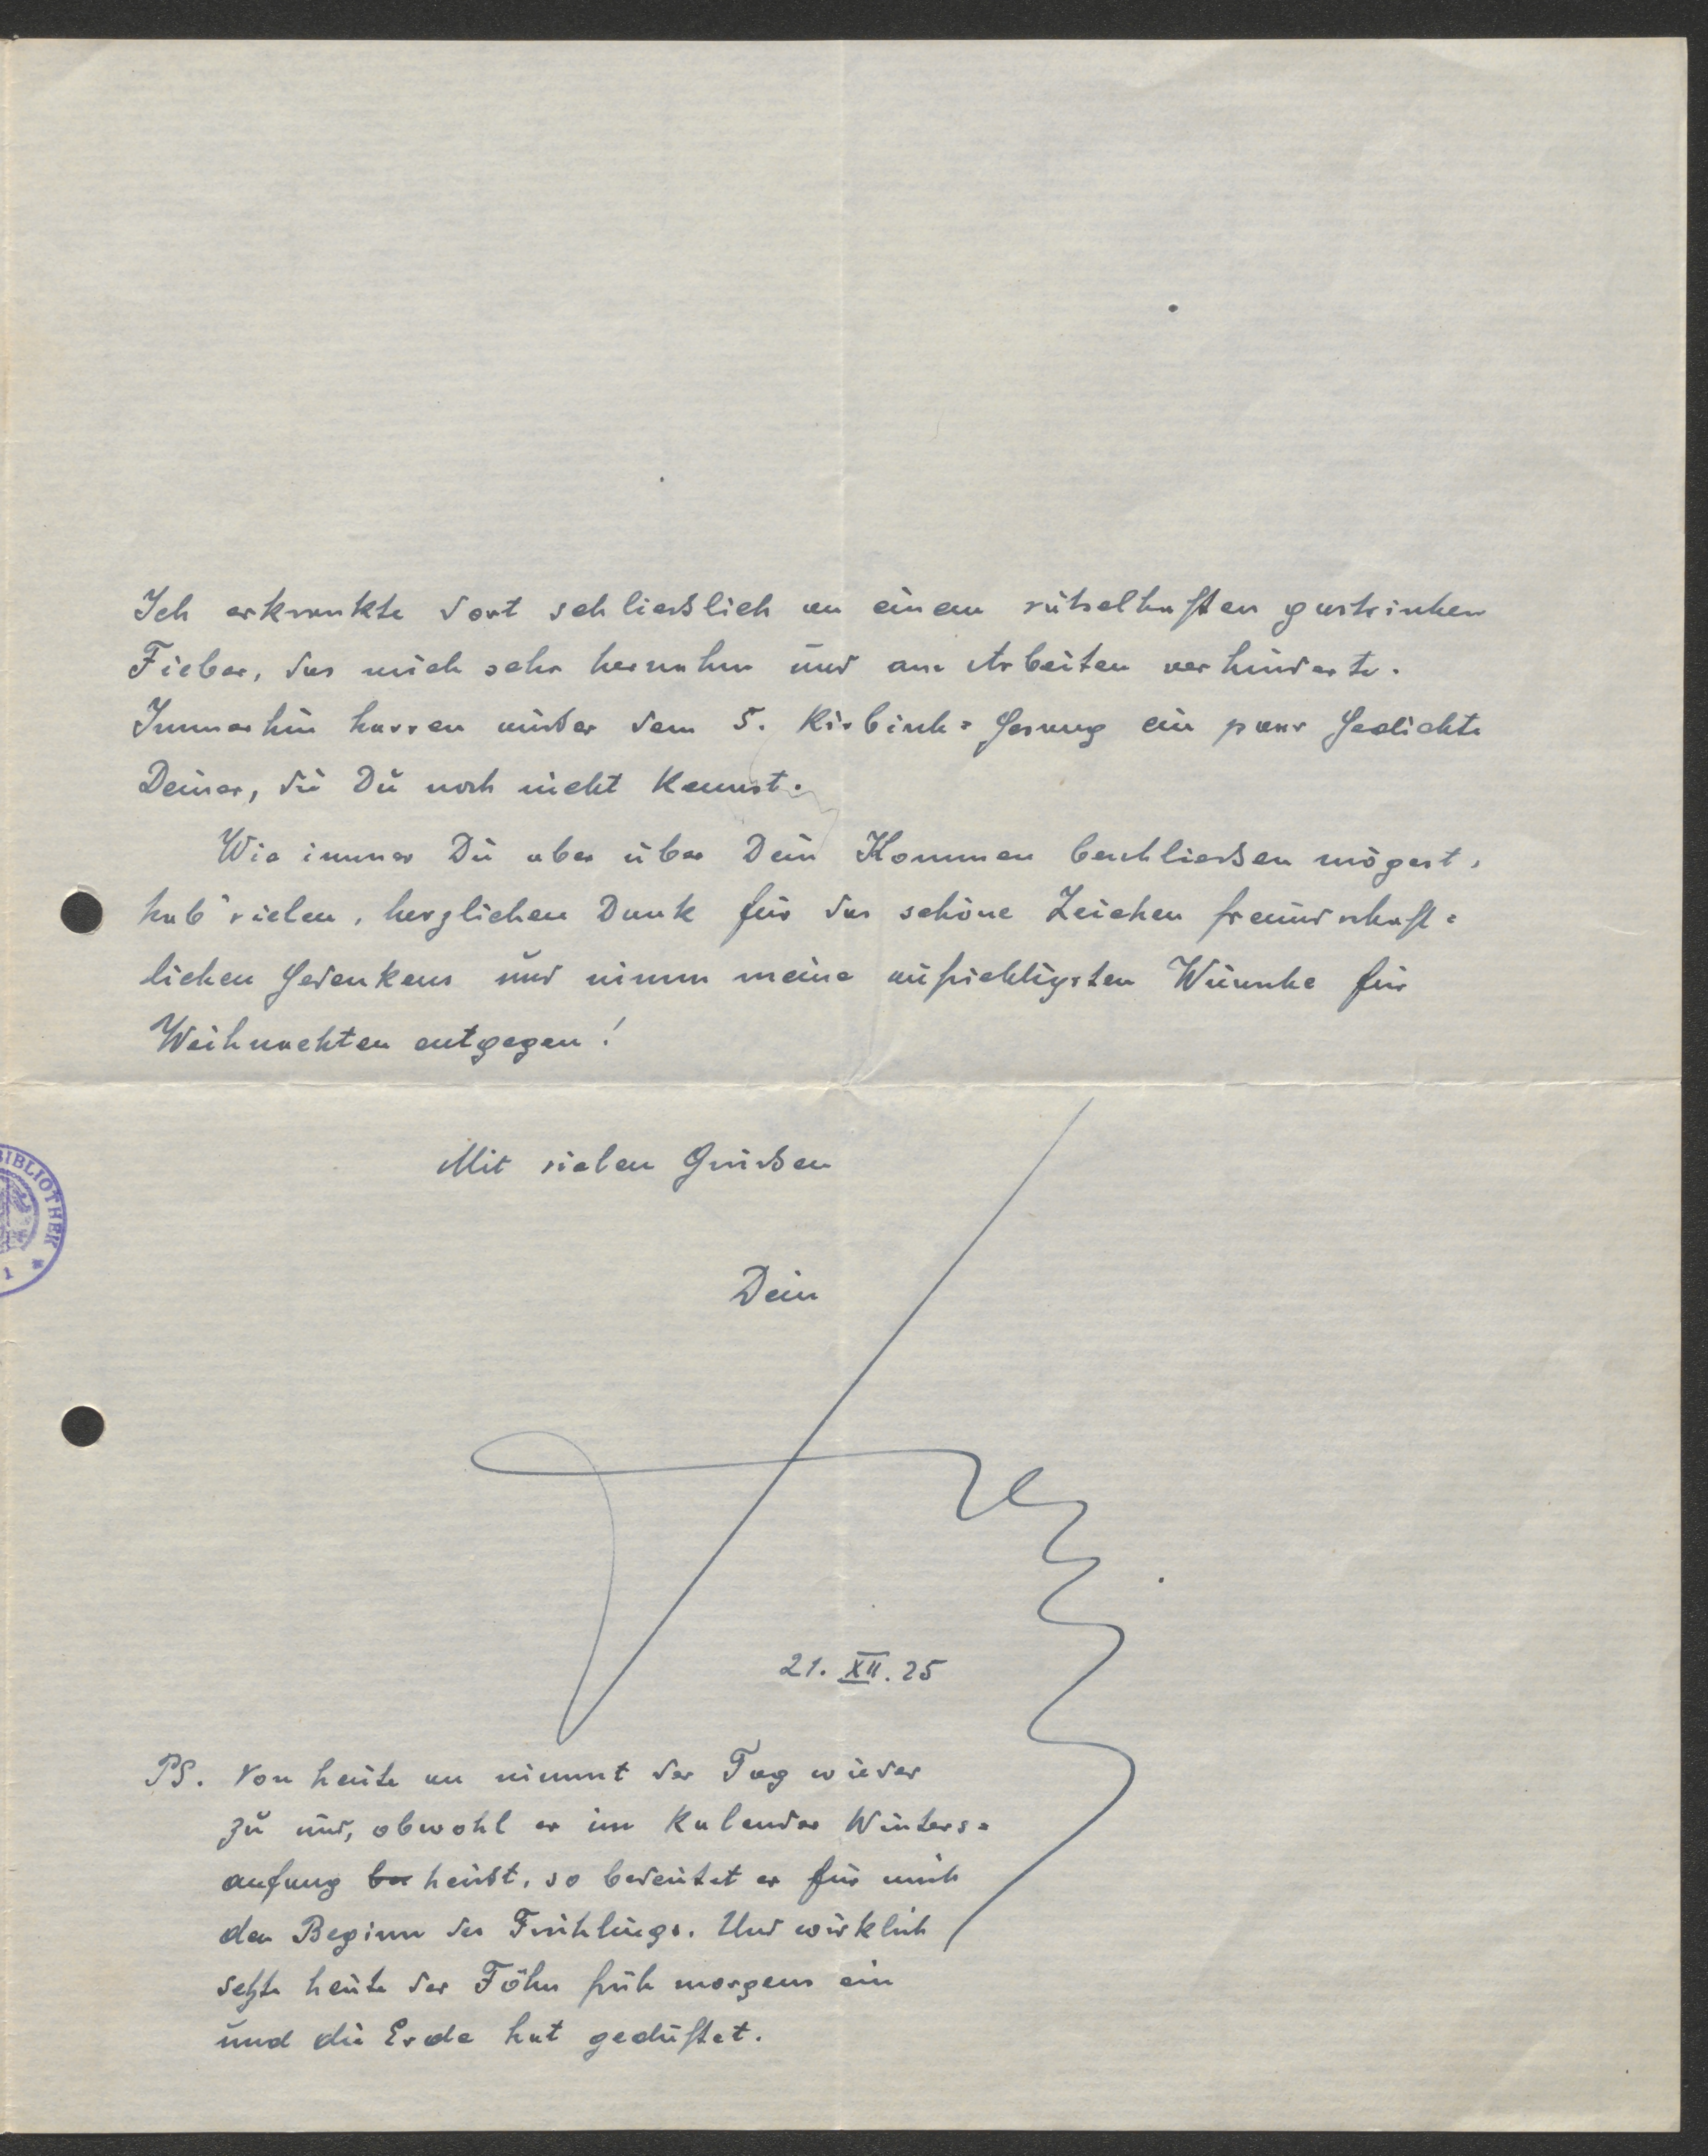 Ich erkrankte dort schliesslich an einem rätselhaften gastrischen
Fieber, das mich sehr hernahm und am Arbeiten verhinderte.
Immerhin harren ausser dem 5. Kirbisch= Gesang ein paar Gedichte
Deiner, die Du noch nicht kennst.
Wie immer Du aber über Dein Kommen beschliessen mögest,
hab' vielen, herzlichen Dank für das schöne Zeichen freundschaft=
lichen Gedenkens und nimm meine aufrichtigsten Wünsche für
Weihnachten entgegen!
BIBLIOTHEK
Mit vielen Grüssen
Dein
21. XII. 25
PS. Von heute an nimmt der Tag wieder
zu und, obwohl er im Kalender Winters=
anfang heisst, so bedeutet er für mich
den Beginn des Frühlings. Und wirklich
setzte heute der Föhn früh morgens ein
und die Erde hat geduftet.